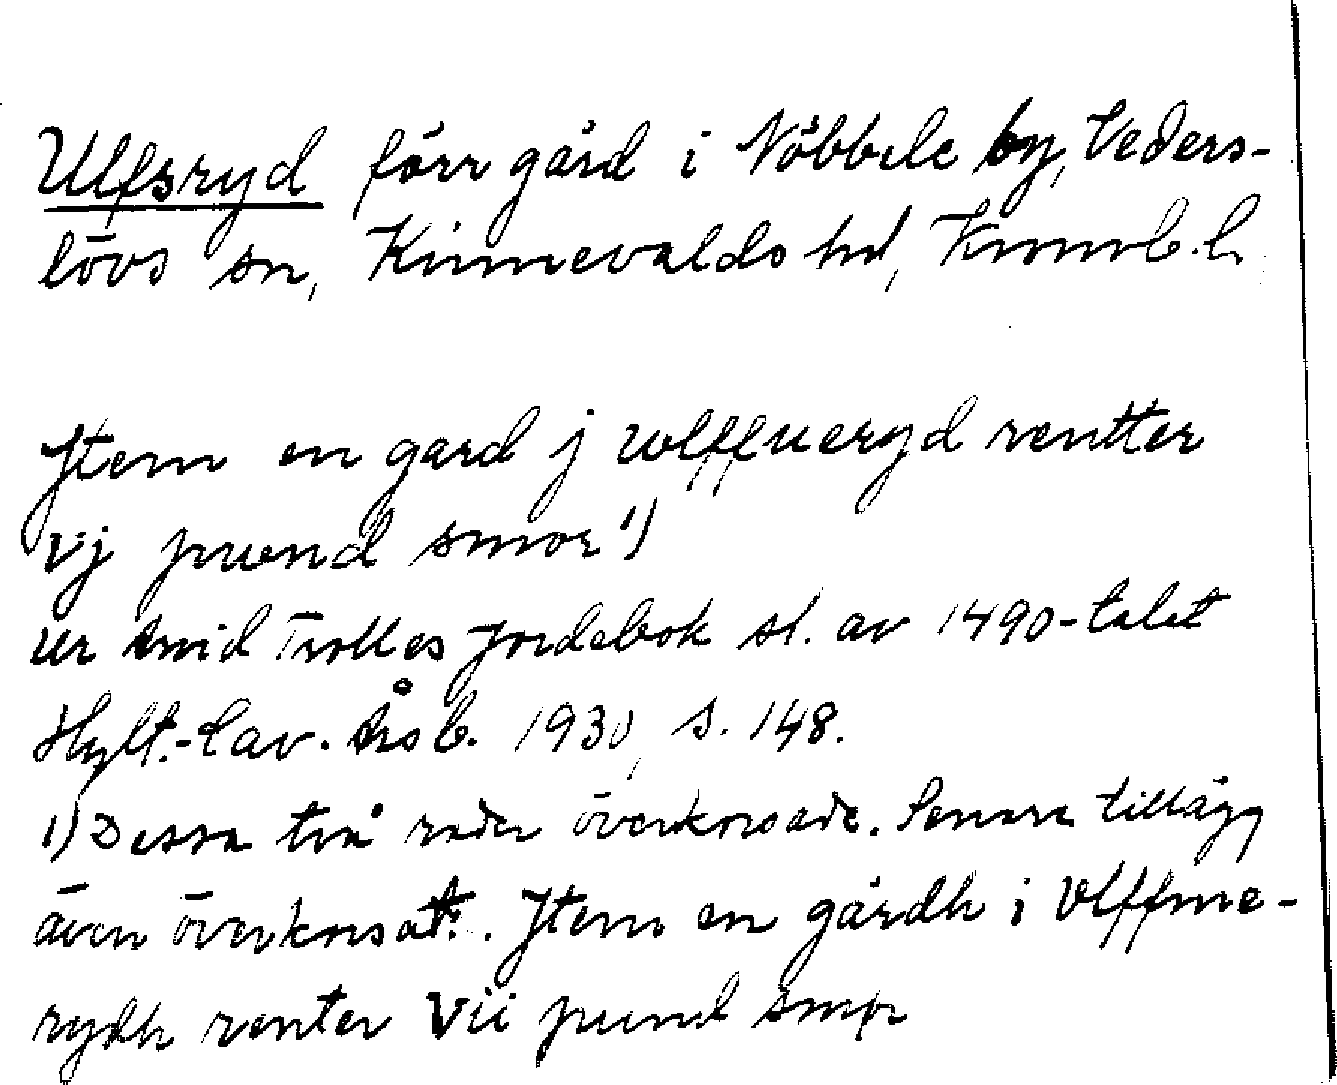 Ulfsryd förr gård i Nöbbele by, Veders-
lövs sn, Kinnevalds hd, Kronob. l.
Jtem en gard j wlffueryd rentter
vj pwnd smor 1)
ur Arvid Trolles Jordebok sl. av 1490-talet
Hylt.-Cav. Årsb. 1930, s. 148.
1) Dessa två rader överkorsade. Senare tillägg
även överkorsat: . Jtem en gårdh i Vlffwe-
rydh renter Vii pund smør